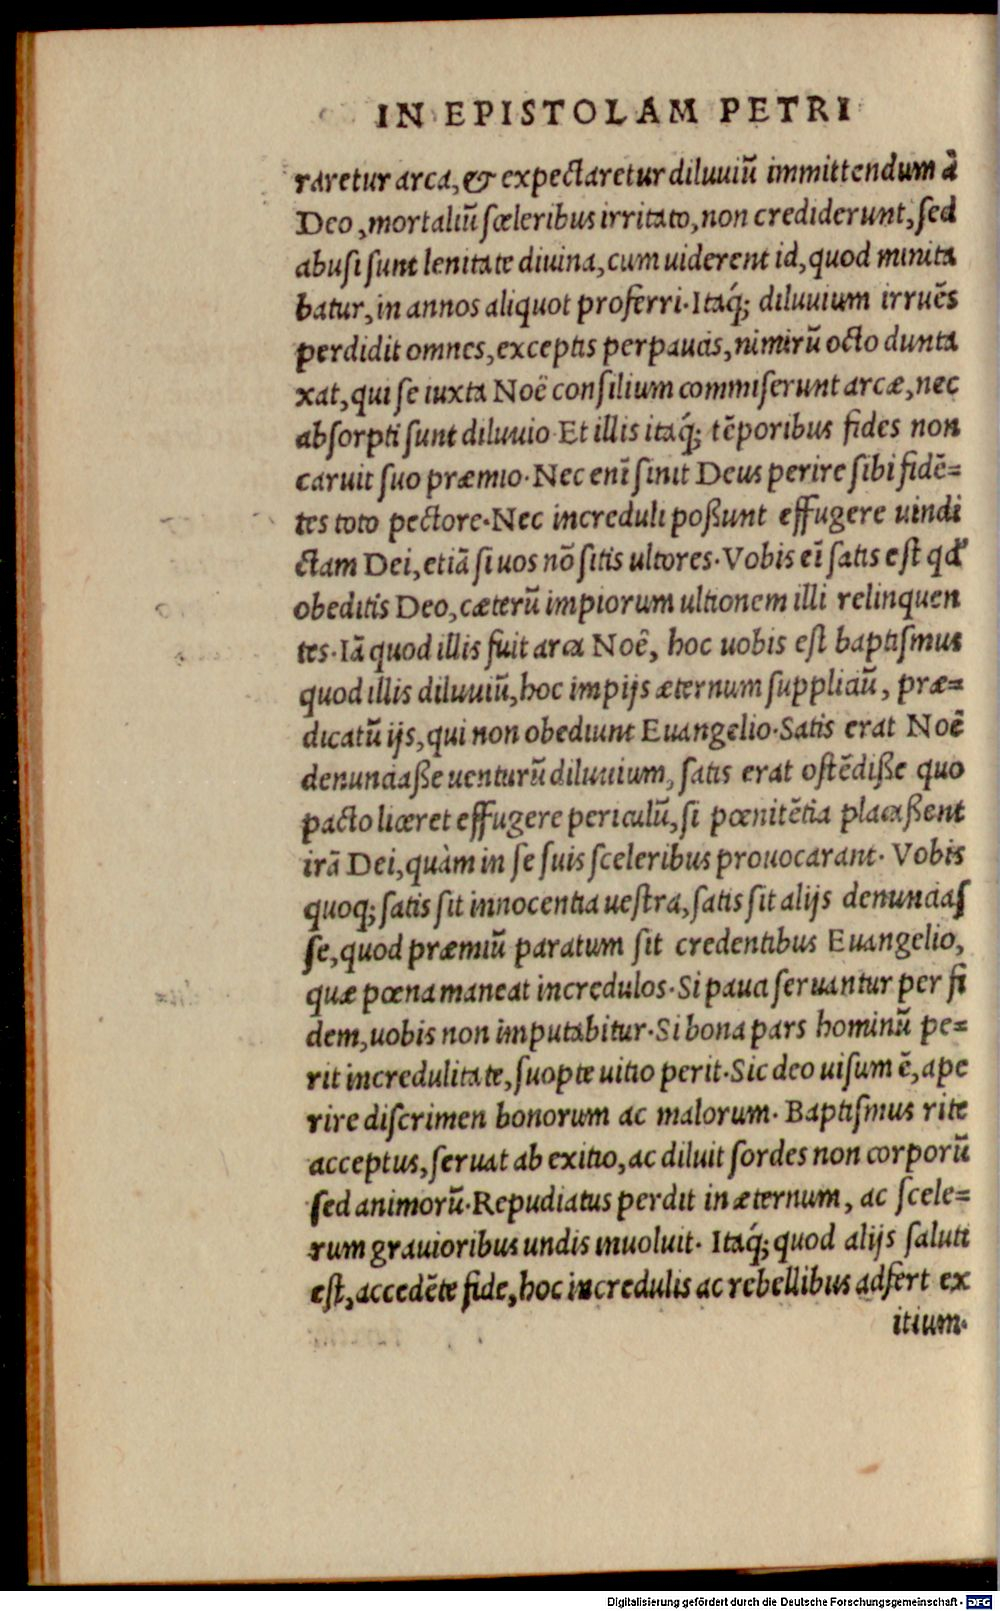 IN EPISTOLAM PETRI
raretur arca, & expectaretur diluuiũ immittendum à
Deo, mortaliũ sceleribus irritato, non crediderunt, sed
abusi sunt lenitate diuina, cum uiderent id, quod minita
batur, in annos aliquot proferri. Itaq́; diluuium irruẽs
perdidit omnes, exceptis perpaucis, nimirũ octo dunta
xat, qui se iuxta Noë consilium commiserunt arcæ, nec
absorpti sunt diluuio. Et illis itaq́; tẽporibus fides non
caruit suo præmio. Nec enĩ sinit Deus perire sibi fidẽ=
tes toto pectore. Nec increduli possunt effugere uindi
ctam Dei, etiã si uos nõ sitis ultores. Vobis eĩ satis est qd'
obeditis Deo, cæterũ impiorum ultionem illi relinquen
tes. Iã quod illis fuit arca Noë, hoc uobis est baptismus
quod illis diluuiũ, hoc impijs æternum suppliciũ, præ=
dicatũ ijs, qui non obediunt Euangelio. Satis erat Noë
denunciasse uenturũ diluuium, satis erat ostẽdisse quo
pacto liceret effugere periculũ, si pœnitẽtia placassent
irã Dei, quàm in se suis sceleribus prouocarant. Vobis
quoq; satis sit innocentia uestra, satis sit alijs denuncias
se, quod præmiũ paratum sit credentibus Euangelio,
quæ pœna maneat incredulos. Si pauci seruantur per fi
dem, uobis non imputabitur. Si bona pars hominũ pe=
rit incredulitate, suopte uitio perit. Sic deo uisum ẽ, ape
rire discrimen bonorum ac malorum. Baptismus rite
acceptus, seruat ab exitio, ac diluit sordes non corporũ
sed animorũ. Repudiatus perdit in æternum, ac scele=
rum grauioribus undis inuoluit. Itaq́; quod alijs saluti
est, accedẽte fide, hoc incredulis ac rebellibus adfert ex
itium.
Digitalisierung gefördert durch die Deutsche Forschungsgemeinschaft - DFG